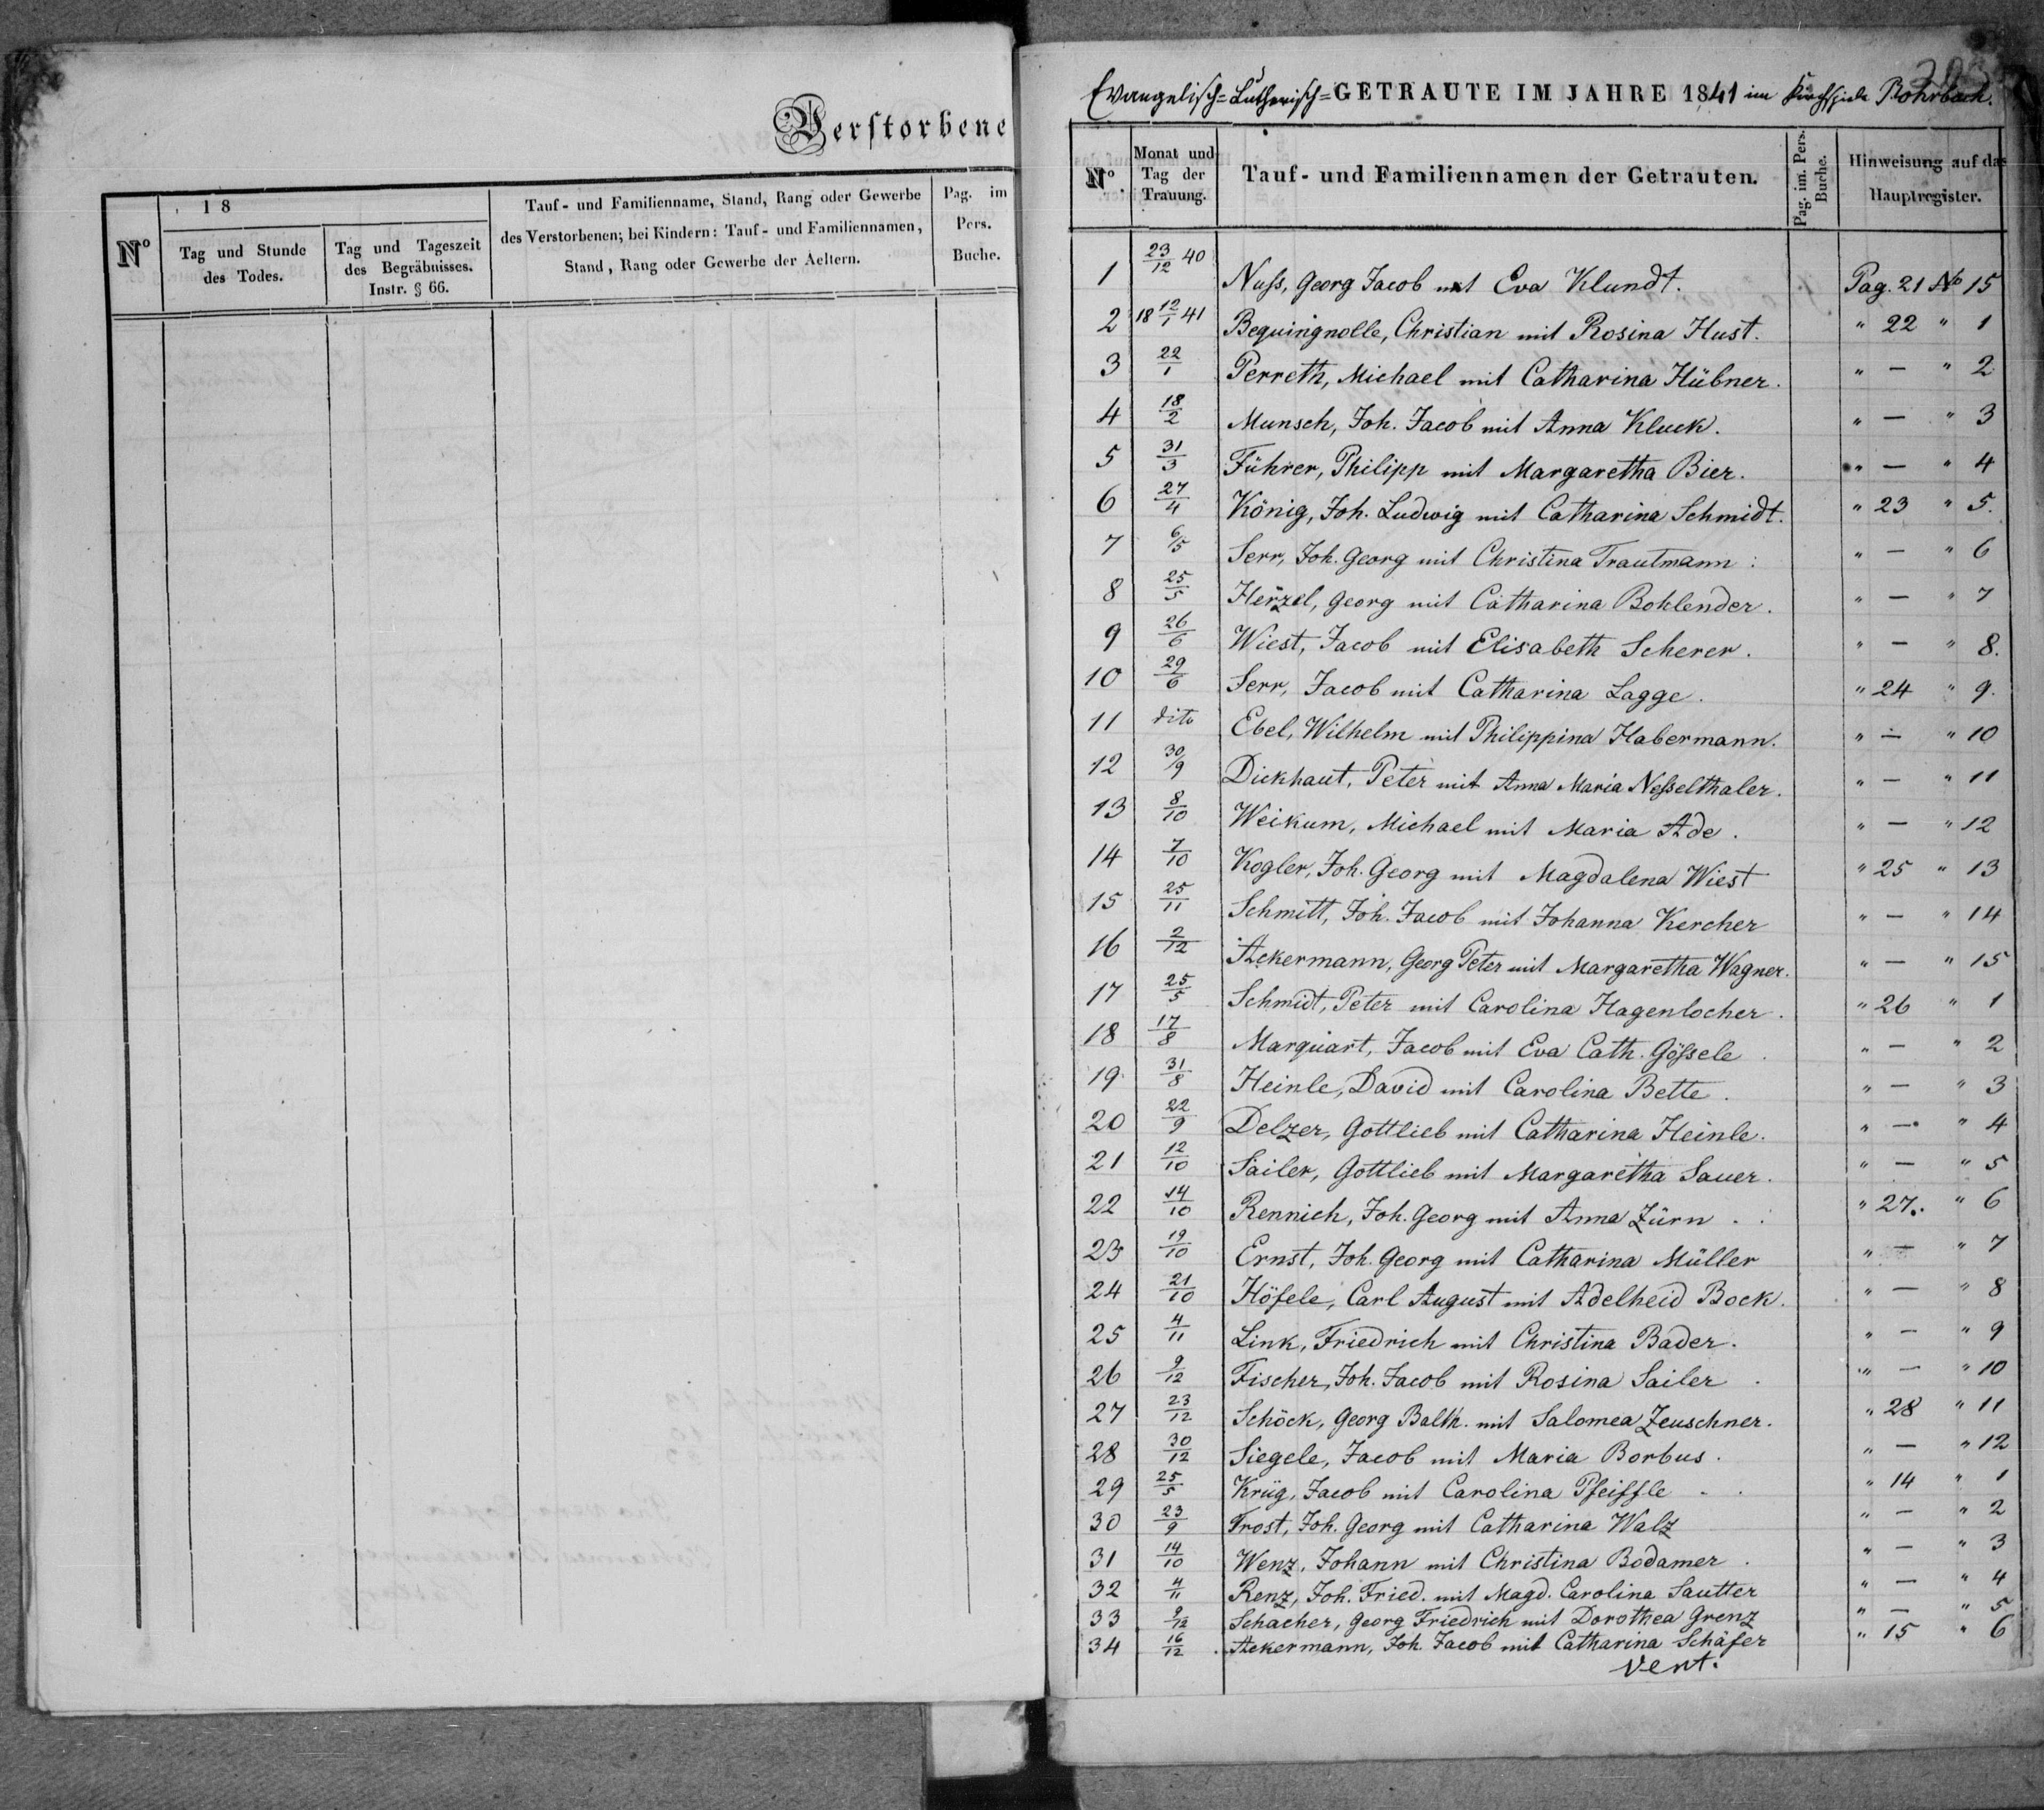 Verstorbene
No
18
Tag und Stunde des Todes.
Tag und Tageszeit des Begräbnisses. Instr. § 66.
Tauf- und Familienname, Stand, Rang oder Gewerbe
des Verstorbenen; bei Kindern: Tauf- und Familiennamen,
Stand, Rang oder Gewerbe der Aeltern.
Pag. im Pers. Buche.
Evangelisch-Lutherisch-GETRAUTE IM JAHRE 1841 im Kirchspiele Rohrbach.
No. Monat und Tag der Trauung. Tauf- und Familiennamen der Getrauten. Pag. im. Pers. Buche. Hinweisung auf das Hauptregister.
1 23/12 40 Nuß, Georg Jacob mit Eva Klundt. Pag. 21 No 15
2 18 12/1 41 Bequingnolle, Christian mit Rosina Hust. " 22 " 1
3 22/1 Perreth, Michael mit Catharina Hübner. " — " 2
4 18/2 Munsch, Joh. Jacob mit Anna Kluck. " — " 3
5 31/3 Führer, Philipp mit Margaretha Bier. " — " 4
6 27/4 König, Joh. Ludwig mit Catharina Schmidt. " 23 " 5.
7 6/5 Serr, Joh. Georg mit Christina Trautmann : " — " 6
8 25/5 Herzel, Georg mit Catharina Bohlender. " — " 7
9 26/6 Wiest, Jacob mit Elisabeth Scherer. " — " 8.
10 29/6 Serr, Jacob mit Catharina Lagge. " 24 " 9.
11 dito Ebel, Wilhelm mit Philippina Habermann. " — " 10
12 30/9 Dickhaut, Peter mit Anna Maria Neßelthaler. " — " 11
13 8/10 Weikum, Michael mit Maria Ade. " — " 12
14 7/10 Kogler, Joh. Georg mit Magdalena Wiest " 25 " 13
15 25/11 Schmitt, Joh. Jacob mit Johanna Kercher " — " 14
16 2/12 Ackermann, Georg Peter mit Margaretha Wagner. " — " 15
17 25/5 Schmidt, Peter mit Carolina Hagenlocher. " 26 " 1
18 17/8 Marquart, Jacob mit Eva Cath. Gößele. " — " 2
19 31/8 Heinle, David mit Carolina Bette. " — " 3
20 22/9 Delzer, Gottlieb mit Catharina Heinle. " — " 4
21 12/10 Sailer, Gottlieb mit Margaretha Sauer. " — " 5
22 14/10 Rennich, Joh. Georg mit Anna Zürn. " 27. " 6
23 19/10 Ernst, Joh. Georg mit Catharina Müller " — " 7
24 21/10 Höfele, Carl August mit Adelheid Bock. " — " 8
25 4/11 Link, Friedrich mit Christina Bader. " — " 9
26 9/12 Fischer, Joh. Jacob mit Rosina Sailer. " — " 10
27 23/12 Schöck, Georg Balth. mit Salomea Zeuschner. " 28 " 11
28 30/12 Siegele, Jacob mit Maria Borbus. " — " 12
29 25/5 Krüg, Jacob mit Carolina Pfeiffle " 14 " 1
30 23/9 Frost, Joh. Georg mit Catharina Walz " — " 2
31 14/10 Wenz, Johann mit Christina Bodamer. " — " 3
32 4/11 Renz, Joh. Fried. mit Magd. Carolina Sautter " — " 4
33 9/12 Schacher, Georg Friedrich mit Dorothea Grenz " — " 5
34 16/12 Ackermann, Joh. Jacob mit Catharina Schäfer " 15 " 6
Vert.